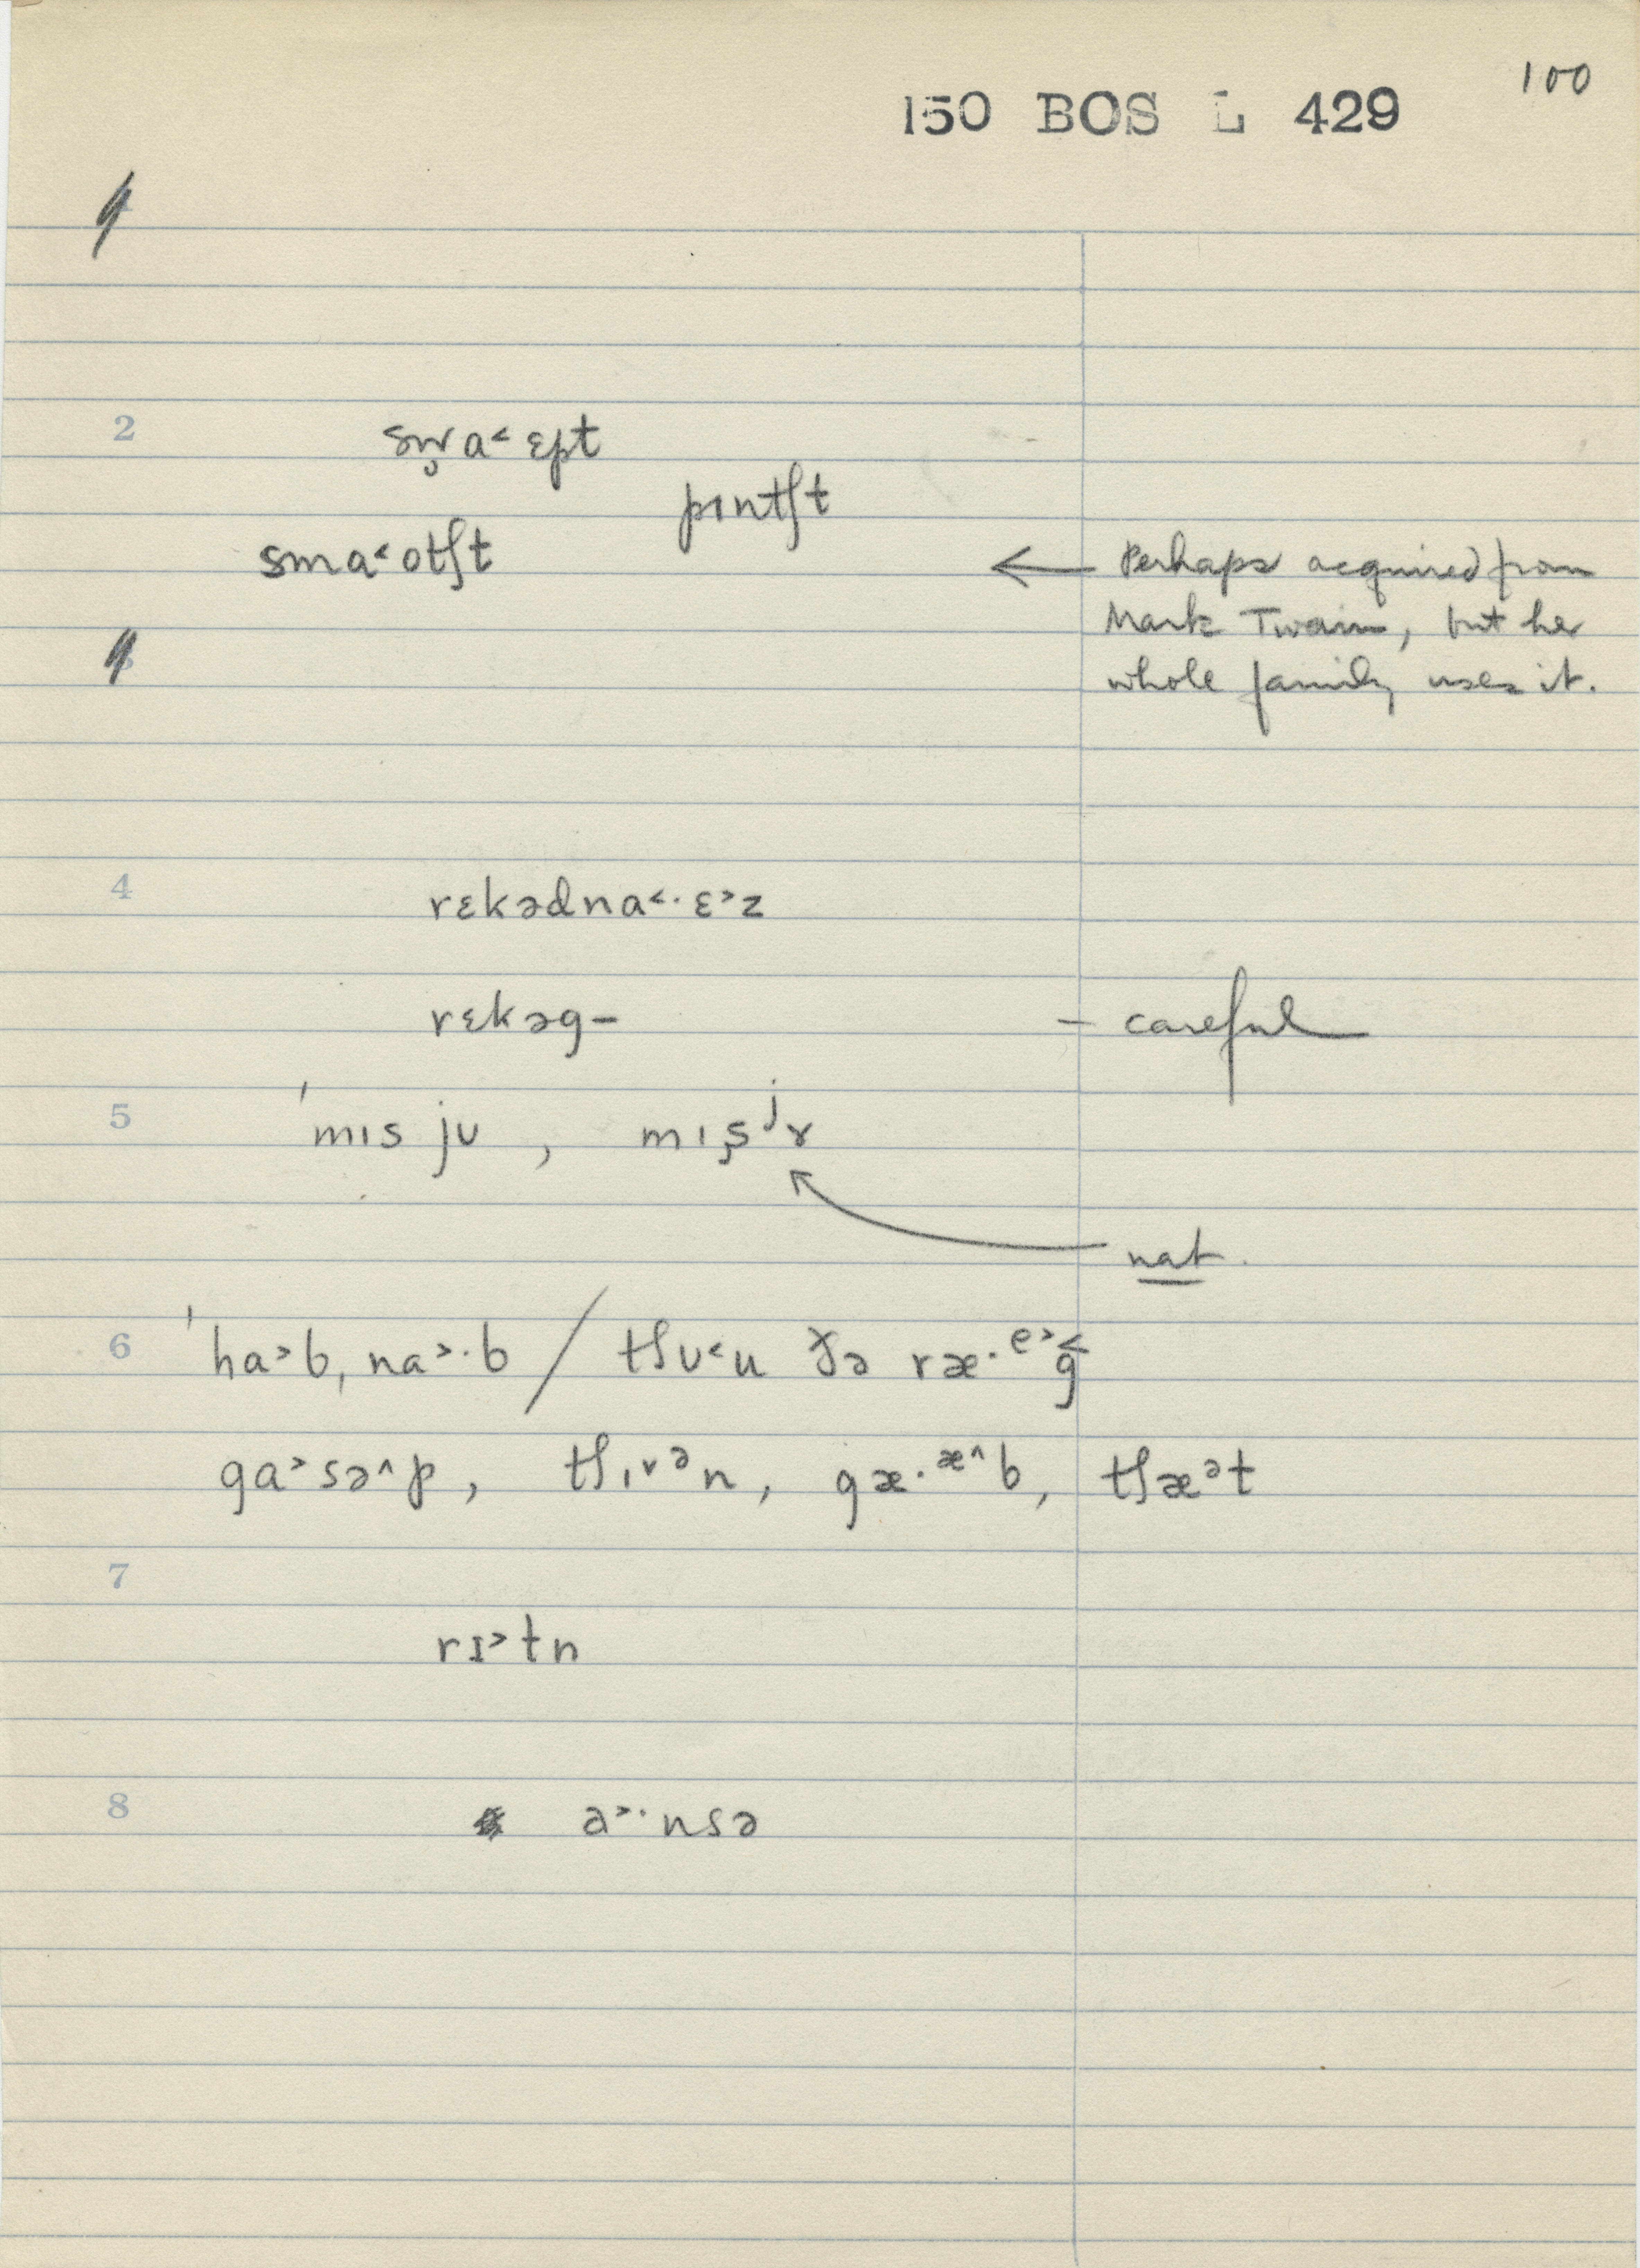 100
150 BOS L 429
1
2 sw̥a˂ɛpt
pɪntʃt
sma˂otʃt ← Perhaps acquired from
Mark Twain, but her
3 whole family uses it.
4 rɛkədna˂·ɛ˃z
rɛkəg– – careful
5 ˈmɪs jʊ , mɪʂʲɤ
nat.
6 ˈha˃b, na˃·b / tʃʊ˂u ðə ræ·ᵉ˃g̬
ga˃sə˄p, tʃɪ˅ᵊn, gæ·æ˄b, tʃæᵊt
7
rɪ˃tn
8 a˃·nsə